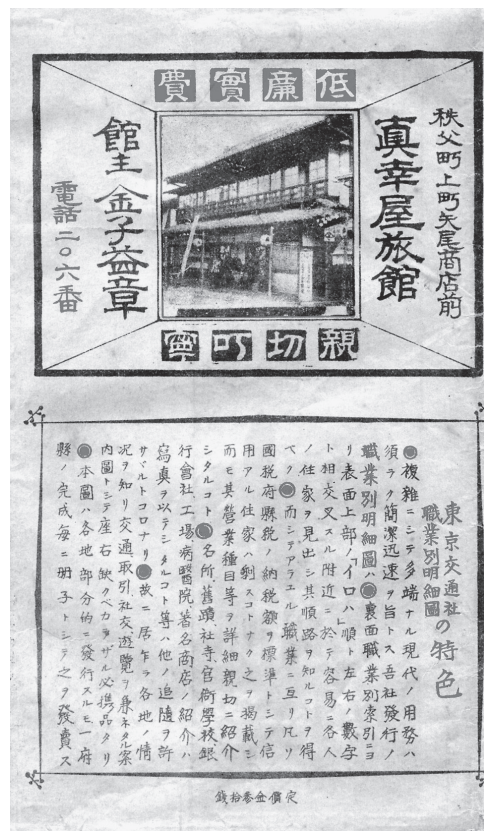 低廉實費
秩父町上町矢尾商店前
真幸屋旅館
館主 金子益章
電話二〇六番
親切叮寧
東京交通社
職業別明細圖
の特色
◉複雜ニシテ多端ナル現代ノ用務ハ
須ラク簡潔迅速ヲ旨トス吾社發行ノ
職業別明細圖ハ◉裏面職業別索引ニヨ
リ表面上部ノ「イロハ」順ト左右ノ數字
ト相交叉スル附近ニ於テ容易ニ各人
ノ住家ヲ見出シ其順路ヲ知ルコトヲ得
ベク◉而シテアラユル職業ニ亙リ凡ソ
國税府縣税ノ納税額ヲ標準トシテ信
用アル住家ハ剩スコトナク之ヲ揭載シ
而モ其營業種目等ヲ詳細親切ニ紹介
シタルコト◉名所、舊蹟、社寺官衙學校銀
行會社、工場病醫院著名商店ノ紹介ハ
寫真ヲ以テシタルコト等ハ他ノ追隨ヲ許
サヾルトコロナリ◉故ニ居乍ラ各地ノ情
況ヲ知リ交通取引、社交、遊覽ヲ兼ネタル案
内圖トシテ座右缺クベカラザル必携品タリ
◉本圖ハ各地部分的ニ發行スルモ一府
縣ノ完成每ニ册子トシテ之ヲ發賣ス
定價金參拾錢